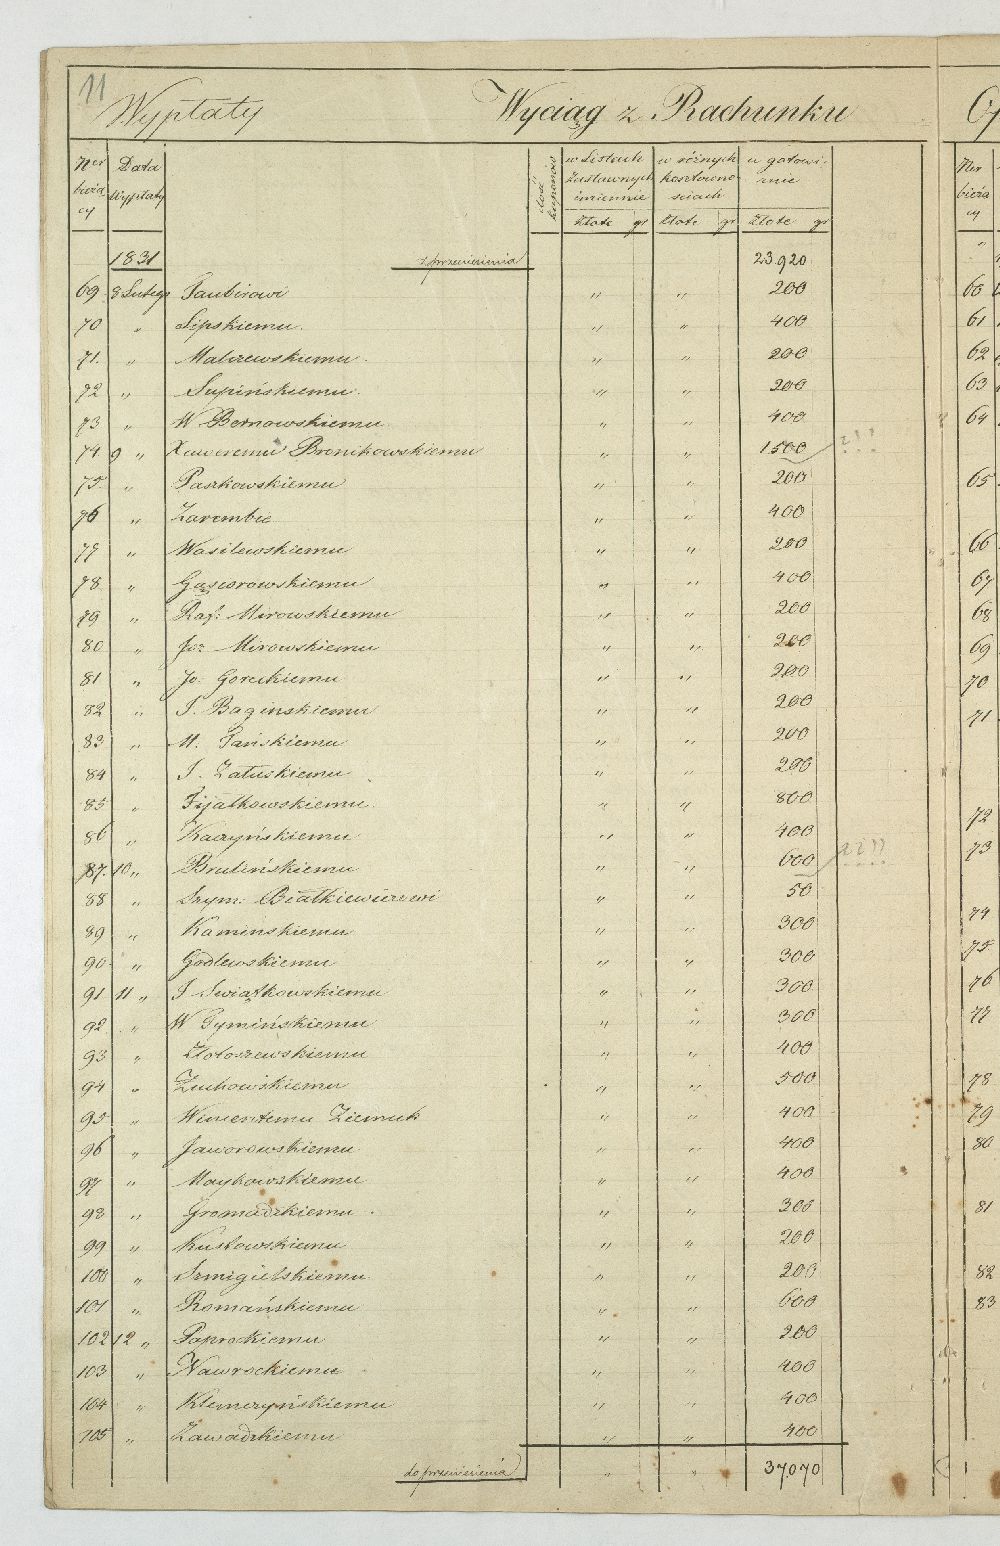 11
Wypłaty Wyciąg z Rachunku
Ner bieżą cy
Data Wypłaty
Ilość kuponów
w Listach Zastawnych imiennie
w różnych kosztowno- sciach
w gotowi- znie
Złote gr Złote gr Złote gr
1831 z przeniesienia 23.920
69 8 Lutego Taubirowi " " 200
70 " Lipskiemu " " 400
71. " Malczewskiemu " " 200
72 " Supińskiemu " " 200
73 " W Bernowskiemu " " 400
74 9 " Xaweremu Bronikowskiemu " " 1500
75 " Paszkowskiemu " " 200
76 " Zarembie " " 400
77 " Wasilewskiemu " " 200
78 " Gąsiorowskiemu " " 400
79 " Raf: Mirowskiemu " " 200
80 " Jo: Mirowskiemu " " 200
81 " Jo: Goreckiemu " " 200
82 " I. Baginskiemu " " 200
83 " M. Tańskiemu " " 200
84 " I. Załuskiemu " " 200
85 " Fijałkowskiemu " " 800
86 " Kaczyńskiemu " " 400
87. 10 " Brulińskiemu " " 600
88 " Szym: Białkiewiczowi " " 50
89 " Kaminskiemu " " 300
90 " Godlewskiemu " " 300
91 11 " I Swiątkowskiemu " " 300
92 " W Tymińskiemu " " 300
93 " Złotoszewskiemu " " 400
94 " Zuchowskiemu " " 500
95 " Wincentemu Ziemuk " " 400
96 " Jaworowskiemu " " 400
97 " Maykowskiemu " " 400
98 " Gromadzkiemu " " 300
99 " Kusłowskiemu " " 200
100 " Szmigielskiemu " " 200
101 " Romańskiemu " " 600
102 12 " Paprockiemu " " 200
103 " Nawrockiemu " " 400
104 " Klemczyńskiemu " " 400
105 " Zawadzkiemu " " 400
do przeniesienia " " 37.070
Ner bieżą cy
"
60
61
62
63
64
65
66
67
68
69
70
71
72
73
74
75
76
77
78
79
80
81
82
83